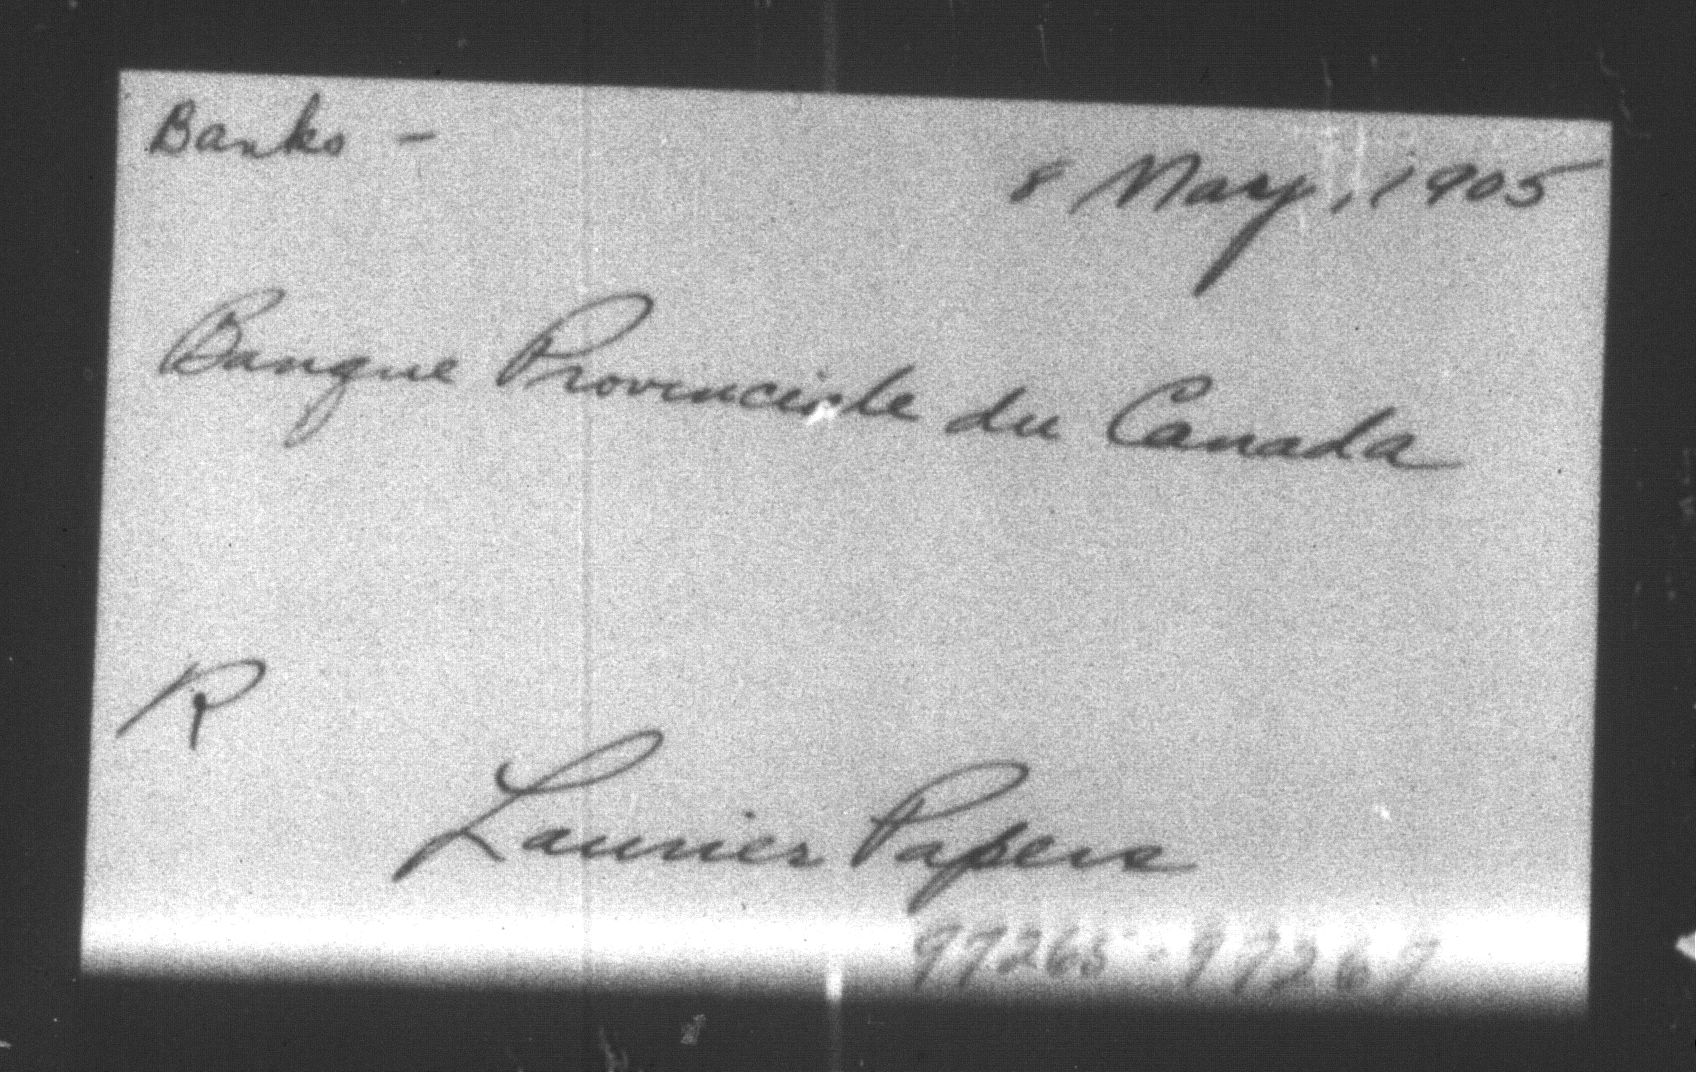 Banks -
8 May, 1905
Banque Provinciale du Canada
R
Laurier Papers
97265-97267